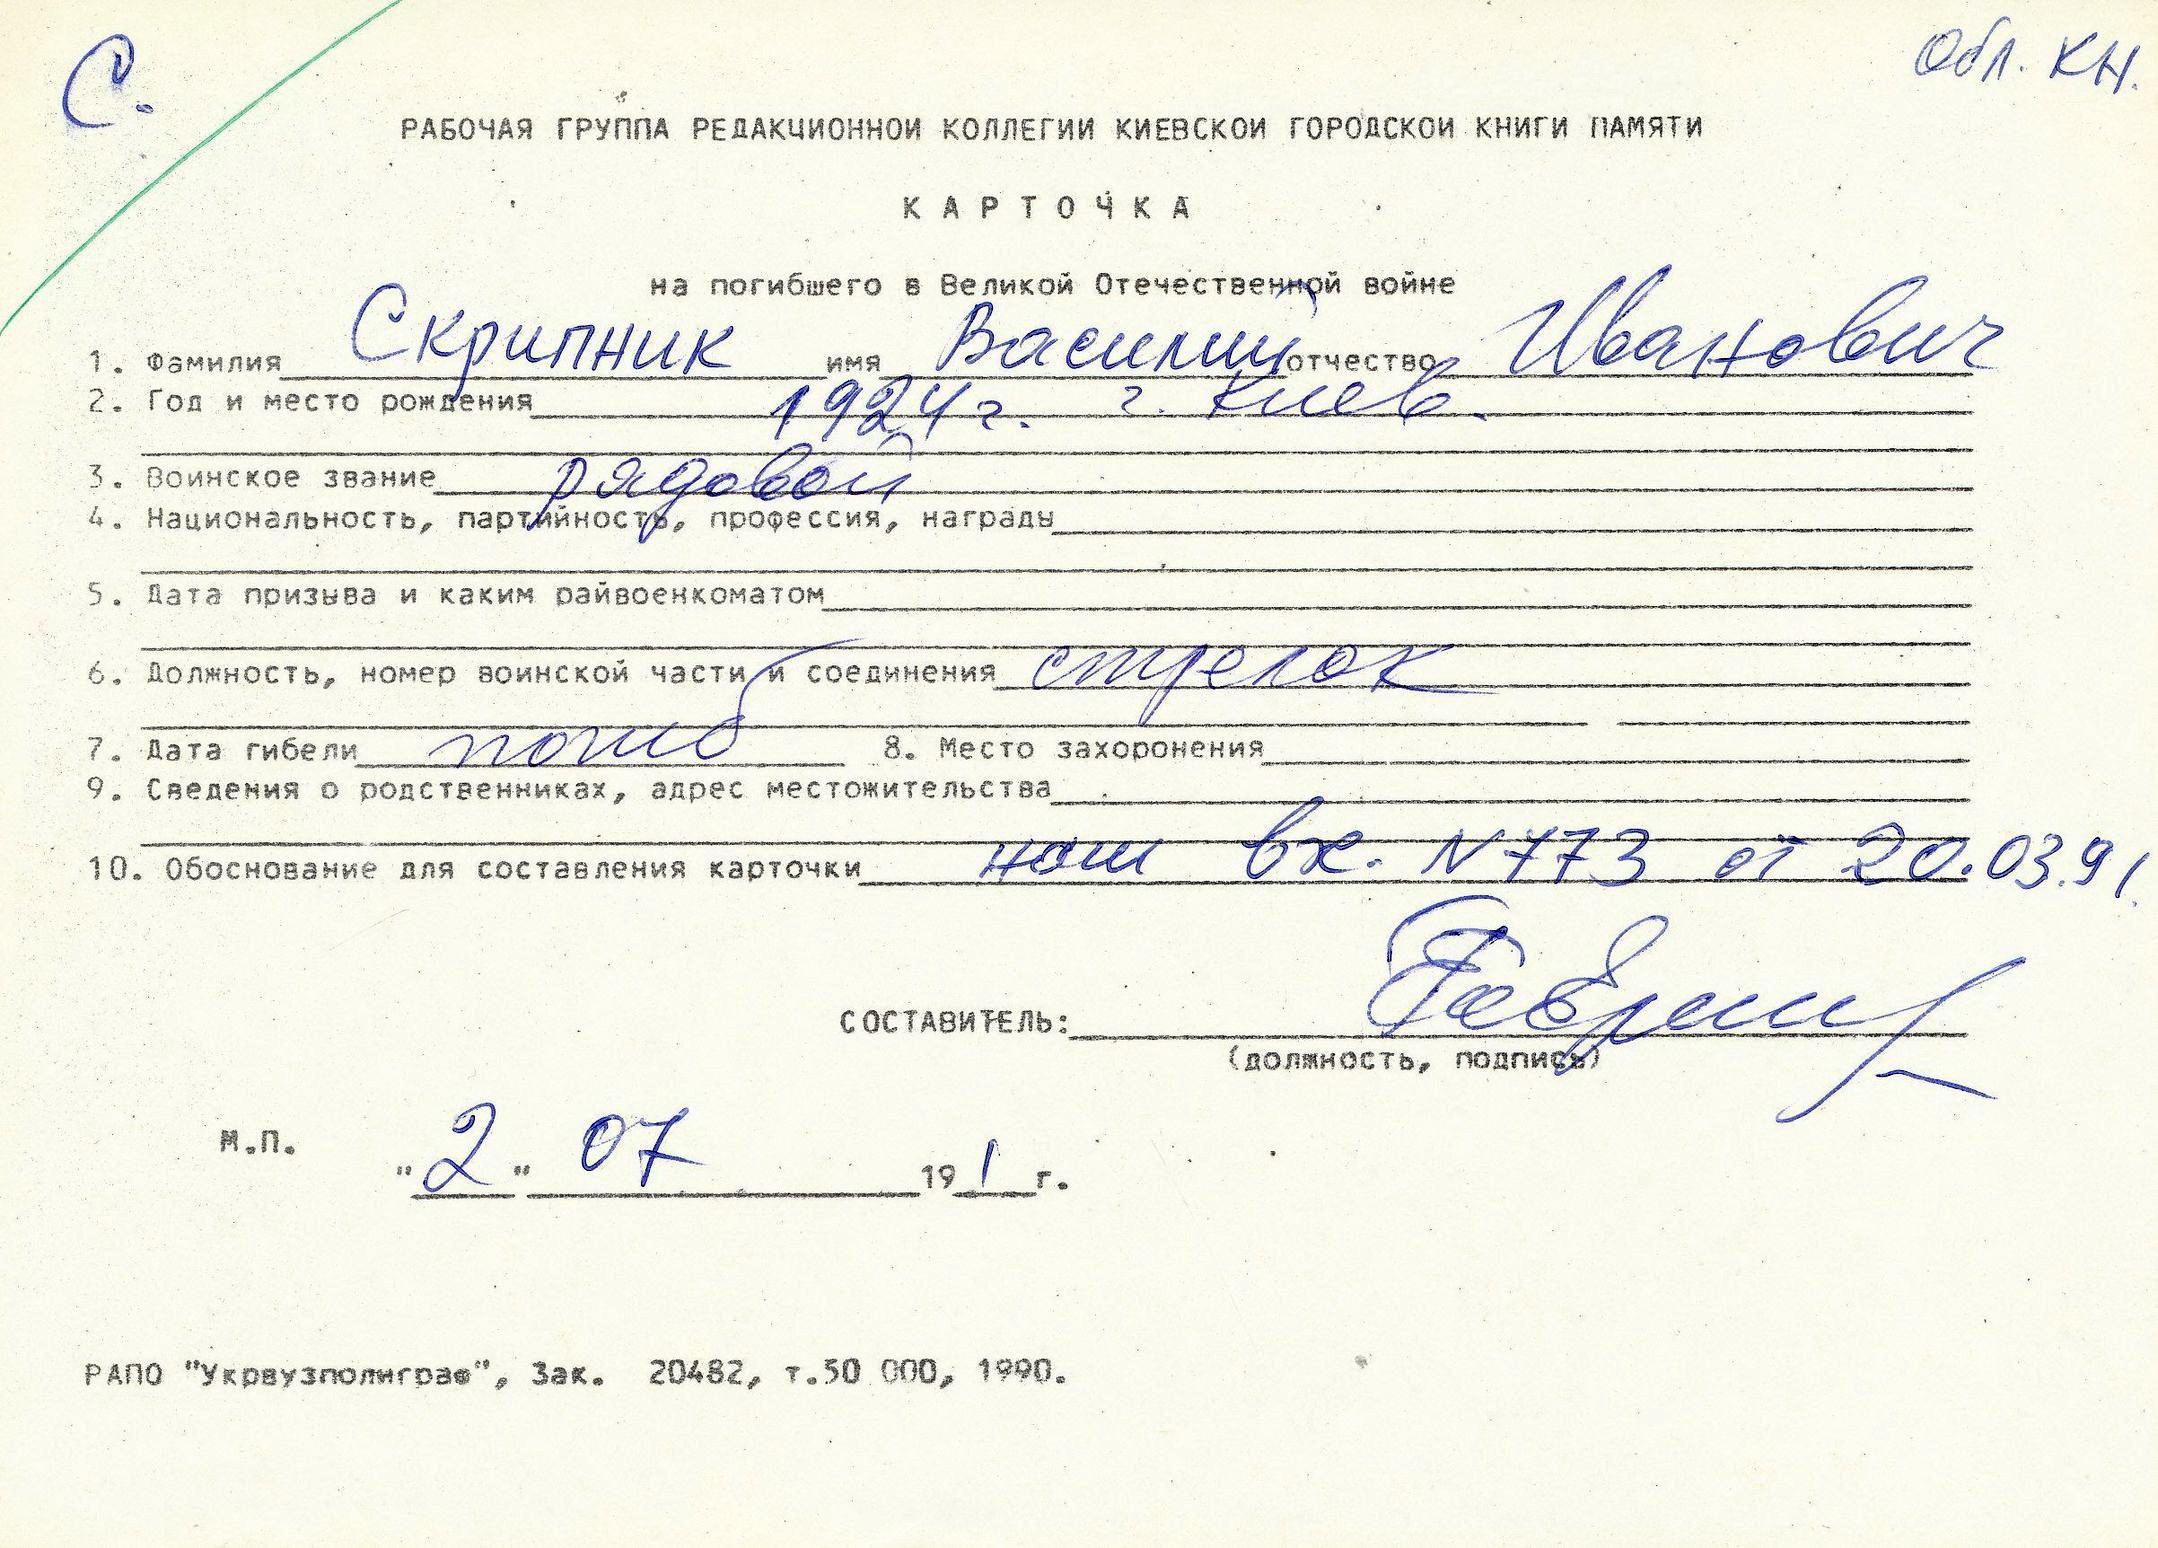 С.
Обл. КН.
РАБОЧАЯ ГРУППА РЕДАКЦИОННОИ КОЛЛЕГИИ КИЕВСКОИ ГОРОДСКОИ КНИГИ ПАМЯТИ
КАРТОЧКА
на погибшего в Великой Отечественной войне
1. Фамилия Скрипник имя Василий отчество Иванович
2. Год и место рождения 1924 г. г. Киев.
3. Воинское звание рядовой
4. Национальность, партийность, профессия, награды
5. Дата призыва и каким райвоенкоматом
6. Должность, номер воинской части и соединения стрелок
7. Дата гибели погиб 8. Место захоронения
9. Сведения о родственниках, адрес местожительства
10. Обоснование для составления карточки наш вх. N 773 от 20.03.91.
СОСТАВИТЕЛЬ:
(должность, подпись)
М.П.
"2" 07 19 1 г.
РАПО "Укрвузполиграф", Зак. 20482, т.50 000, 1990.